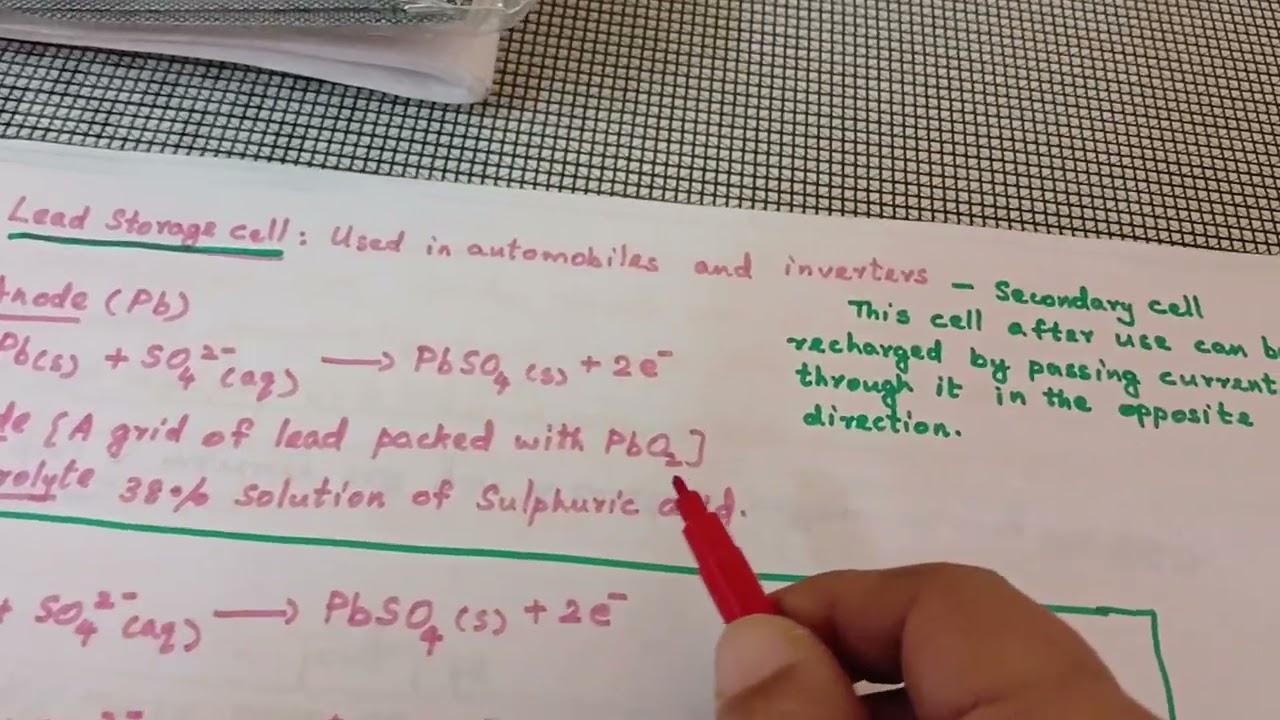 Lead Storage cell: Used in automobiles and inverters - Secondary cell
This cell after use can be
recharged by passing current
through it in the opposite
direction.
Anode (Pb)
Pb(s) + SO₄²⁻(aq) ⟶ PbSO₄(s) + 2e⁻
de [A grid of lead packed with PbO₂]
rolyte 38% solution of Sulphuric acid.
+ SO₄²⁻(aq) ⟶ PbSO₄(s) + 2e⁻